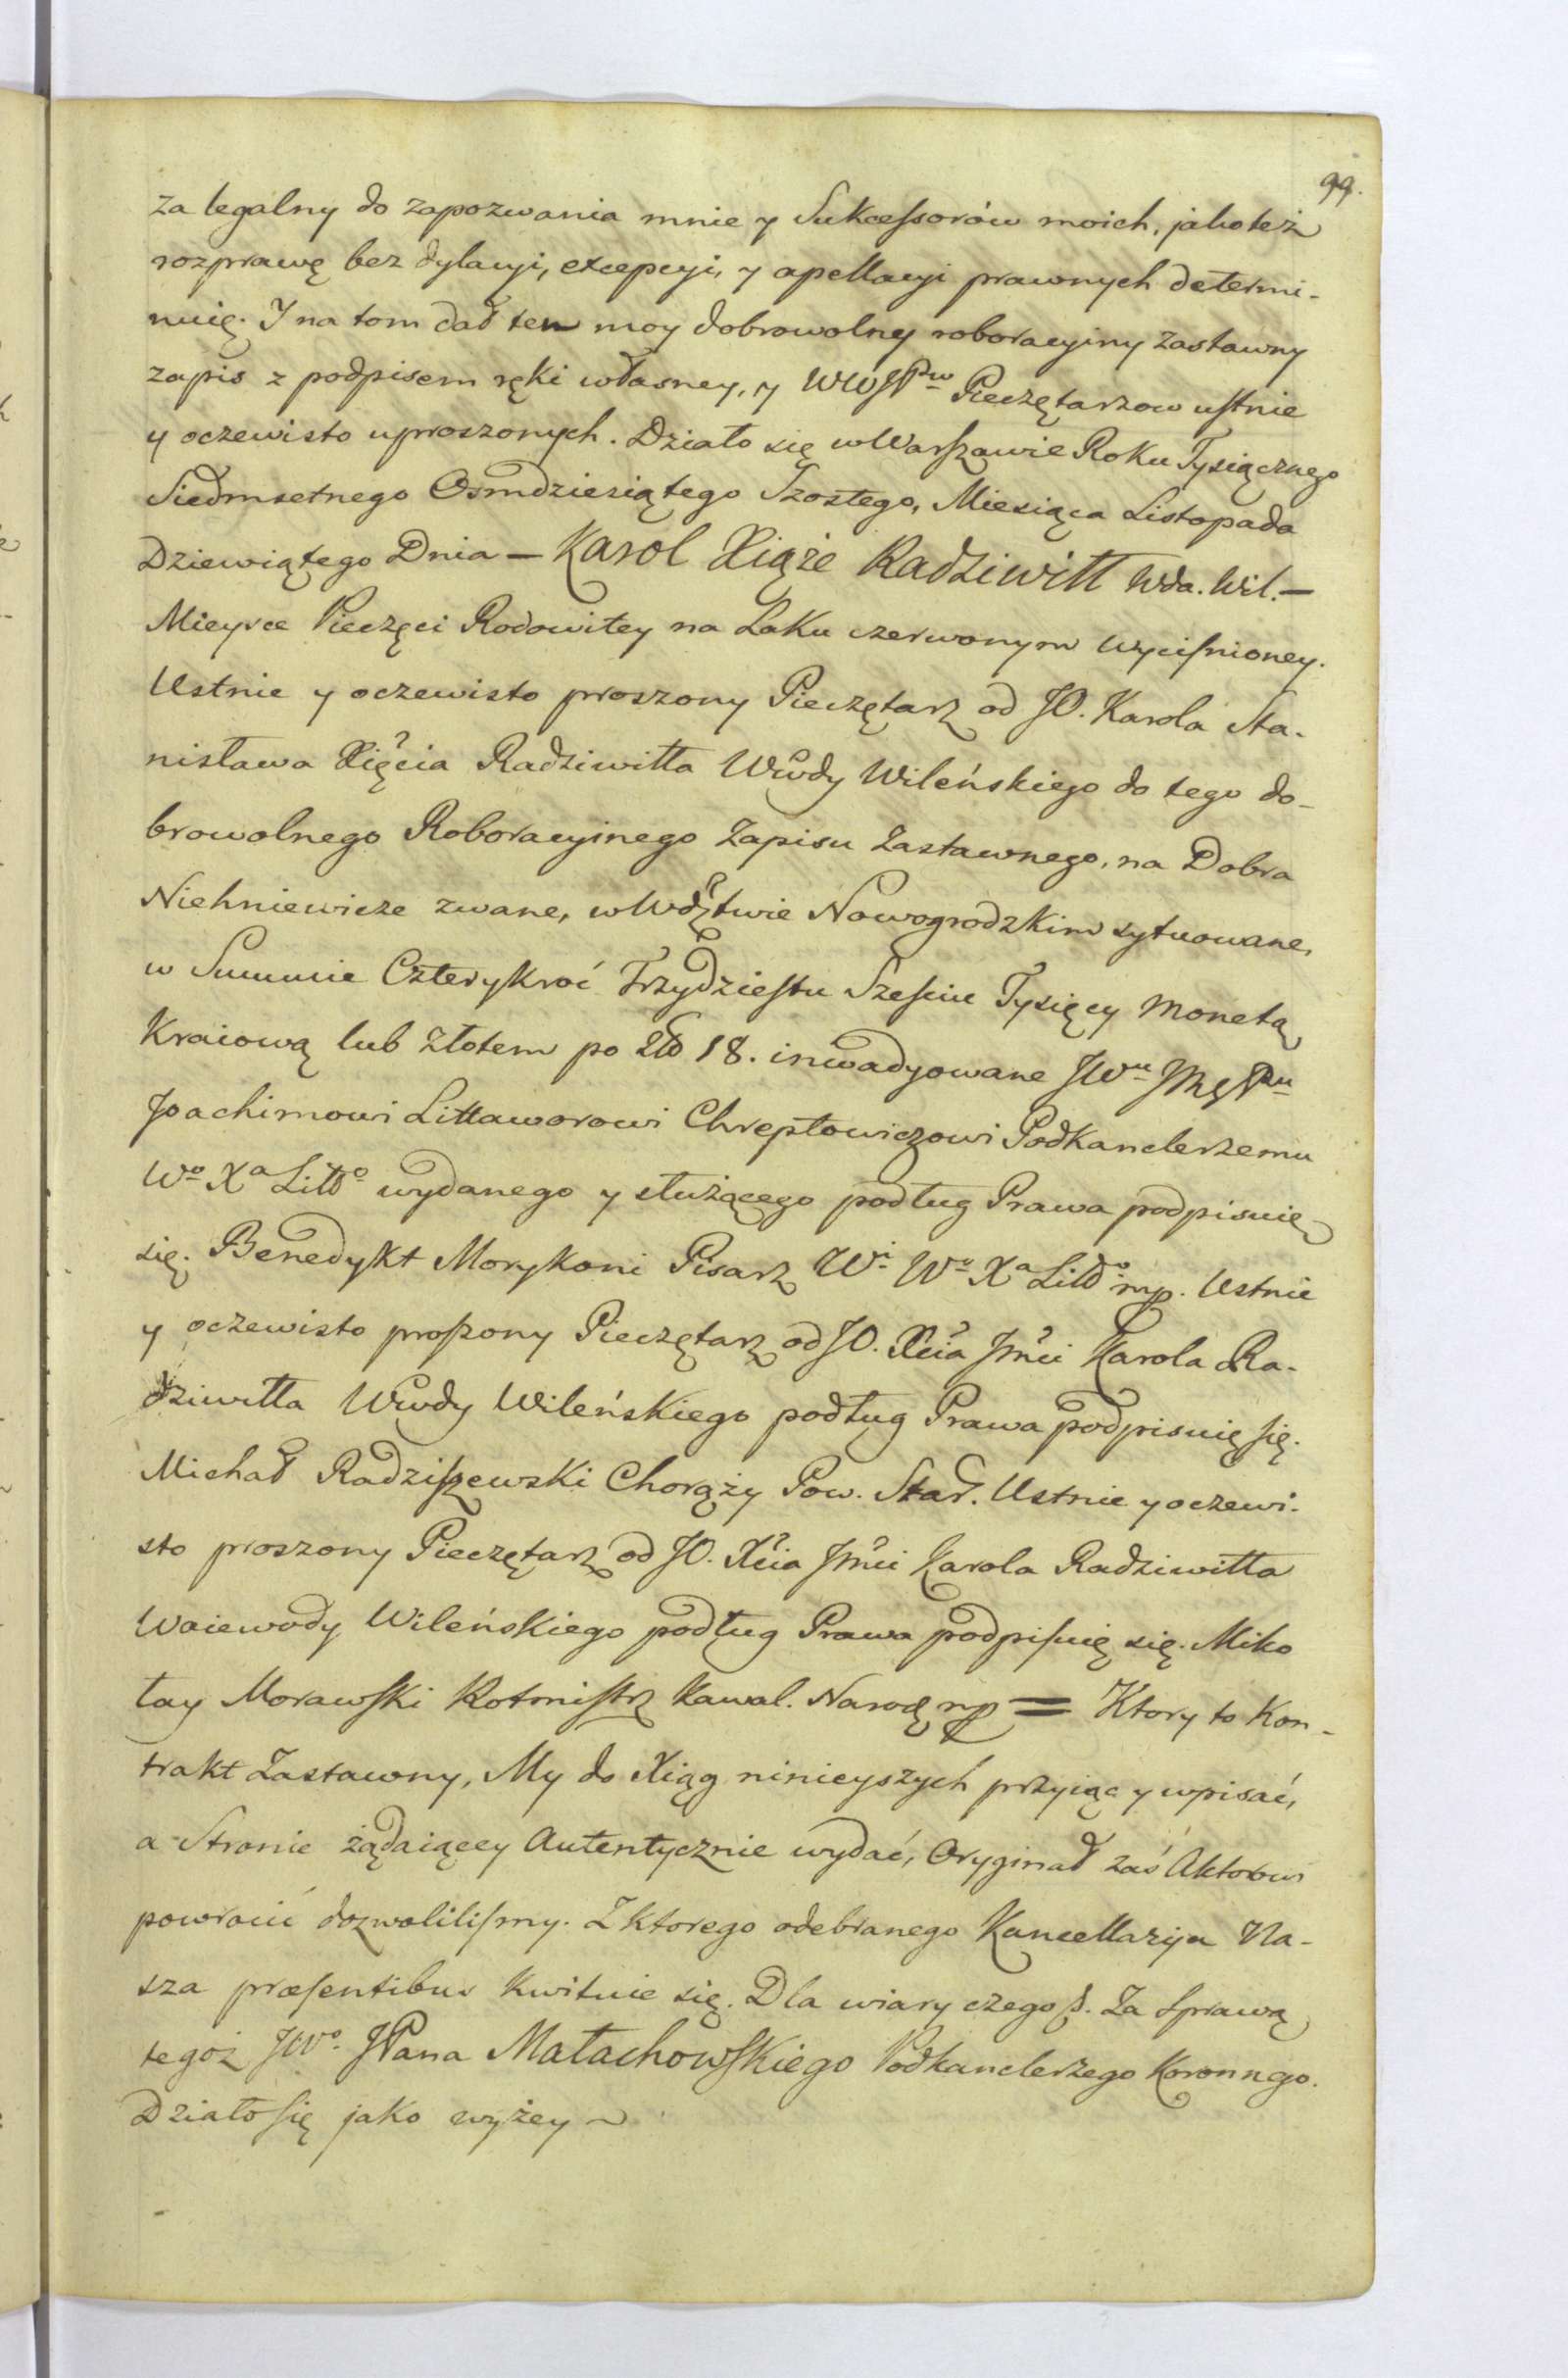 99.
za legalny do zapozwania mnie y Sukceſsorów moich, jakoteż
rozprawę bez dylacyi, excepcyi, y apellacyi prawnych determi-
nuię. I na tom dał ten moy dobrowolny roboracyiny zastawny
zapis z podpisem ręki własney, y WWJPw Pieczętarzow uſtnie
y oczewisto uproszonych. Działo się w Warſzawie Roku Tysiącznego
Siedmsetnego Osmdziesiątego Szostego, Miesiąca Listopada
Dziewiątego Dnia – Karol Xiąże Radziwiłł Wda. Wil. –
Mieysce Pieczęci Rodowitey na Laku czerwonym wyciſnioney.
Ustnie y oczewisto proszony Pieczętarz od JO. Karola Sta-
nisława Xięcia Radziwiłła Wwdy Wileńskiego do tego do-
browolnego Roboracyinego Zapisu Zastawnego, na Dobra
Niehniewicze zwane, w Wdztwie Nowogrodzkim sytuowane,
w Summie Czterykroć Trzydzieſtu Szeſciu Tysięcy Monetą
Kraiową lub złotem po Złł 18. inwadyowane JWu JMć Pu
Joachimowi Littaworowi Chreptowiczowi Podkanclerzemu
Wo Xa Litto wydanego y służącego podług Prawa podpisuię
się. Benedykt Morykoni Pisarz Wi Wo Xa Litto mp. Ustnie
y oczewisto proſzony Pieczętarz od JO. Xcia Jmci Karola Ra-
dziwiłła Wwdy Wileńskiego podług Prawa podpisuię ſię.
Michał Radziſzewski Chorąży Pow. Star. Ustnie y oczewi-
sto proszony Pieczętarz od JO. Xcia Jmci Karola Radziwiłła
Woiewody Wileńskiego podług Prawa podpiſuię się. Miko
łay Morawſki Rotmiſtrz Kawal. Narod mp = Ktory to Kon-
trakt Zastawny, My do Xiąg ninieyszych przyiąc y wpisać,
a Stronie żądaiącey Autentycznie wydać, Oryginał zaś Aktorowi
powrocić dozwoliliſmy. Z ktorego odebranego Kancellaryja Na-
sza præſentibus kwituie się. Dla wiary czego ß. Za Sprawą
tegoż JWo. JPana Małachowſkiego Podkanclerzego Koronngo.
Działo ſię jako wyżey ~